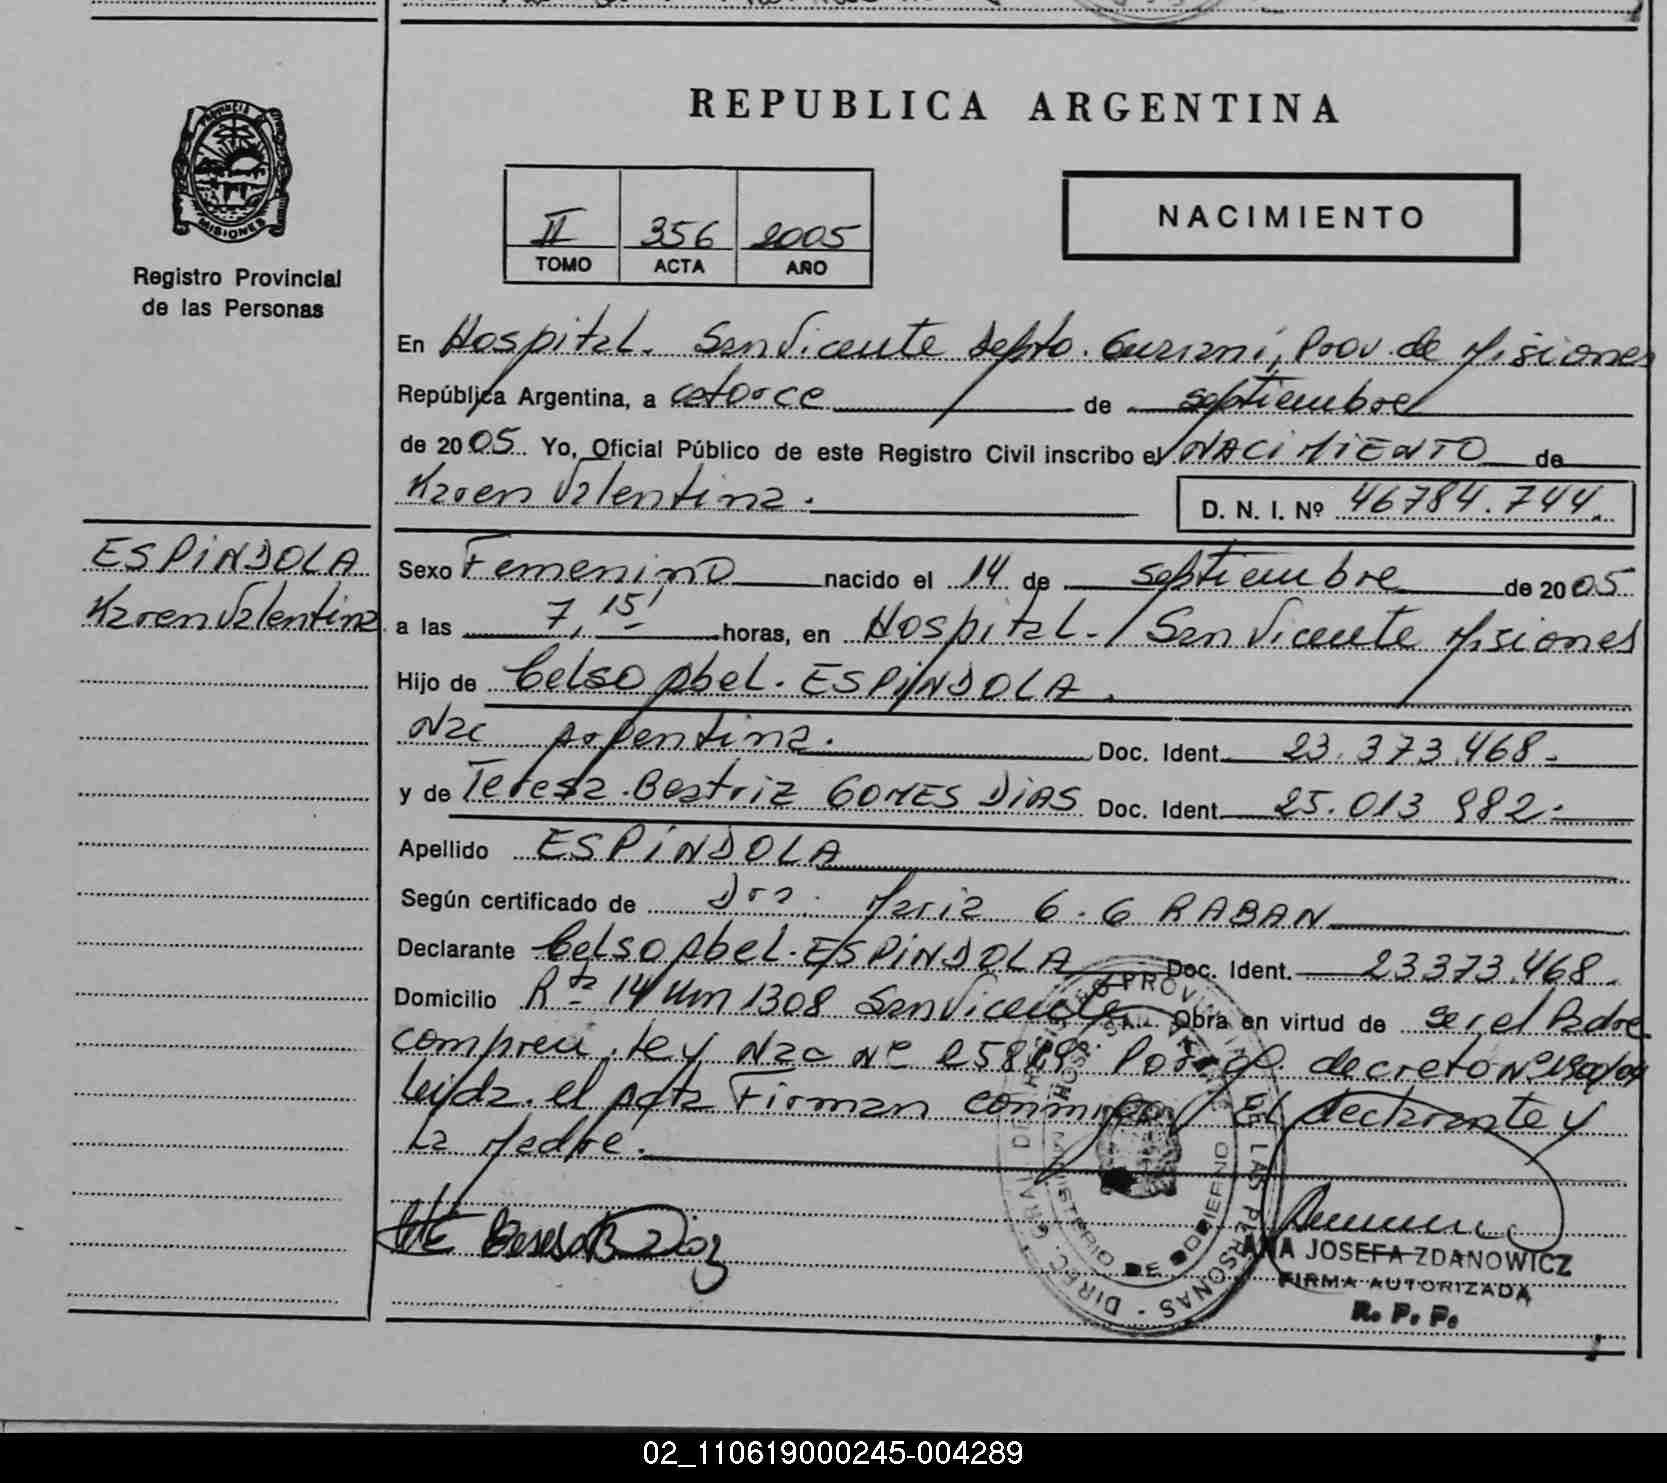 REPUBLICA ARGENTINA
PROVINCIA DE
MISIONES
Registro Provincial
de las Personas
II 356 2005
TOMO ACTA AÑO
NACIMIENTO
En Hospital. San Vicente depto. Guaraní, Prov. de Misiones
República Argentina, a catorce de septiembre
de 2005. Yo, Oficial Público de este Registro Civil inscribo el NACIMIENTO de
Karen Valentina. D. N. I. Nº 46784.744.
ESPINDOLA
Karen Valentina
Sexo Femenino nacido el 14 de septiembre de 2005
a las 7,15' horas, en Hospital. San Vicente Misiones
Hijo de Celso Abel. ESPINDOLA.
Nac Argentina. Doc. Ident. 23.373.468.
y de Teresa. Beatriz GOMES DIAS Doc. Ident. 25.013 982.
Apellido ESPINDOLA
Según certificado de Dra. Maria G. G RABAN
Declarante Celso Abel. ESPINDOLA Doc. Ident. 23373.468.
Domicilio Rta 14 Km 1308 San Vicente Obra en virtud de ser el Padre
Ley Nac Nº Por el decreto Nº
leida. el acta Firman conmigo El declarante y
La Madre.
DIREC. GRAL. DE REGISTRO PROVINCIAL DE LAS PERSONAS
MINISTERIO DE GOBIERNO
ANA JOSEFA ZDANOWICZ
FIRMA AUTORIZADA
R. P. P.
02_110619000245-004289